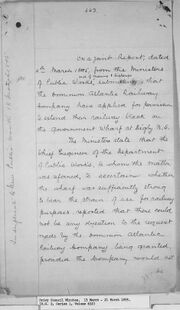 On a Joint Report, dated
4th March 1895, from the Ministers
of Public Works, submitting that
the Dominion Atlantic Railway
Company have applied for permission
to extend their railway track on
the Government Wharf at Digby N.S.
The Ministers state that the
Chief Engineer of the Department
of Public Works, to whom the matter
was referred, to ascertain whether
the wharf was sufficiently strong
to bear the strain of use for railway
purposes reported that there could
not be any objection to the request
made by the Dominion Atlantic
Railway Company being granted,
provided the Company would
Privy Council Minutes, 15 March - 21 March 1895
(R.G. 2, Series 1, Volume